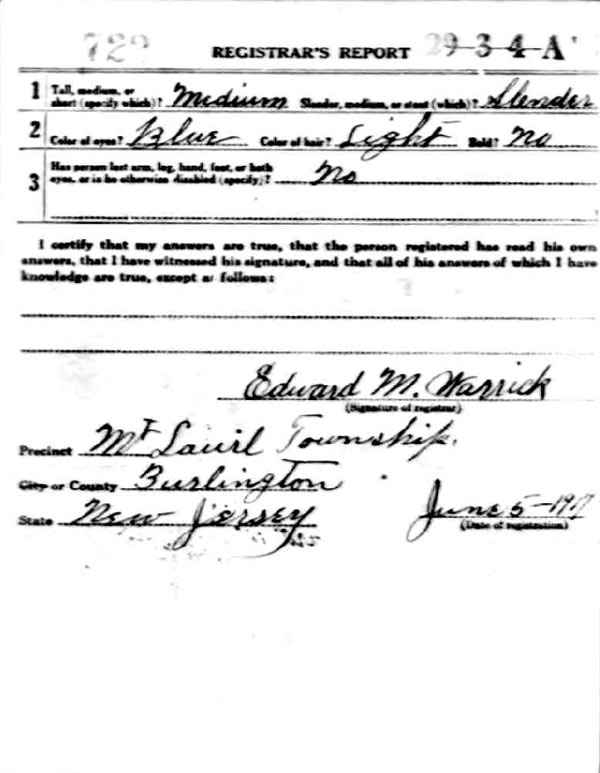 729 REGISTRAR'S REPORT 29-3-4-A
1 Tall, medium, or short (specify which)? Medium Slender, medium, or stout (which)? Slender
2 Color of eyes? Blue Color of hair? Light Bald? No
3 Has person lost arm, leg, hand, foot, or both eyes, or is he otherwise disabled (specify)? No
I certify that my answers are true, that the person registered has read his own
answers, that I have witnessed his signature, and that all of his answers of which I have
knowledge are true, except as follows:
Edward M. Warrick
(Signature of registrar)
Precinct Mt Lauril Township.
City or County Burlington
State New Jersey June 5-1917
(Date of registration)